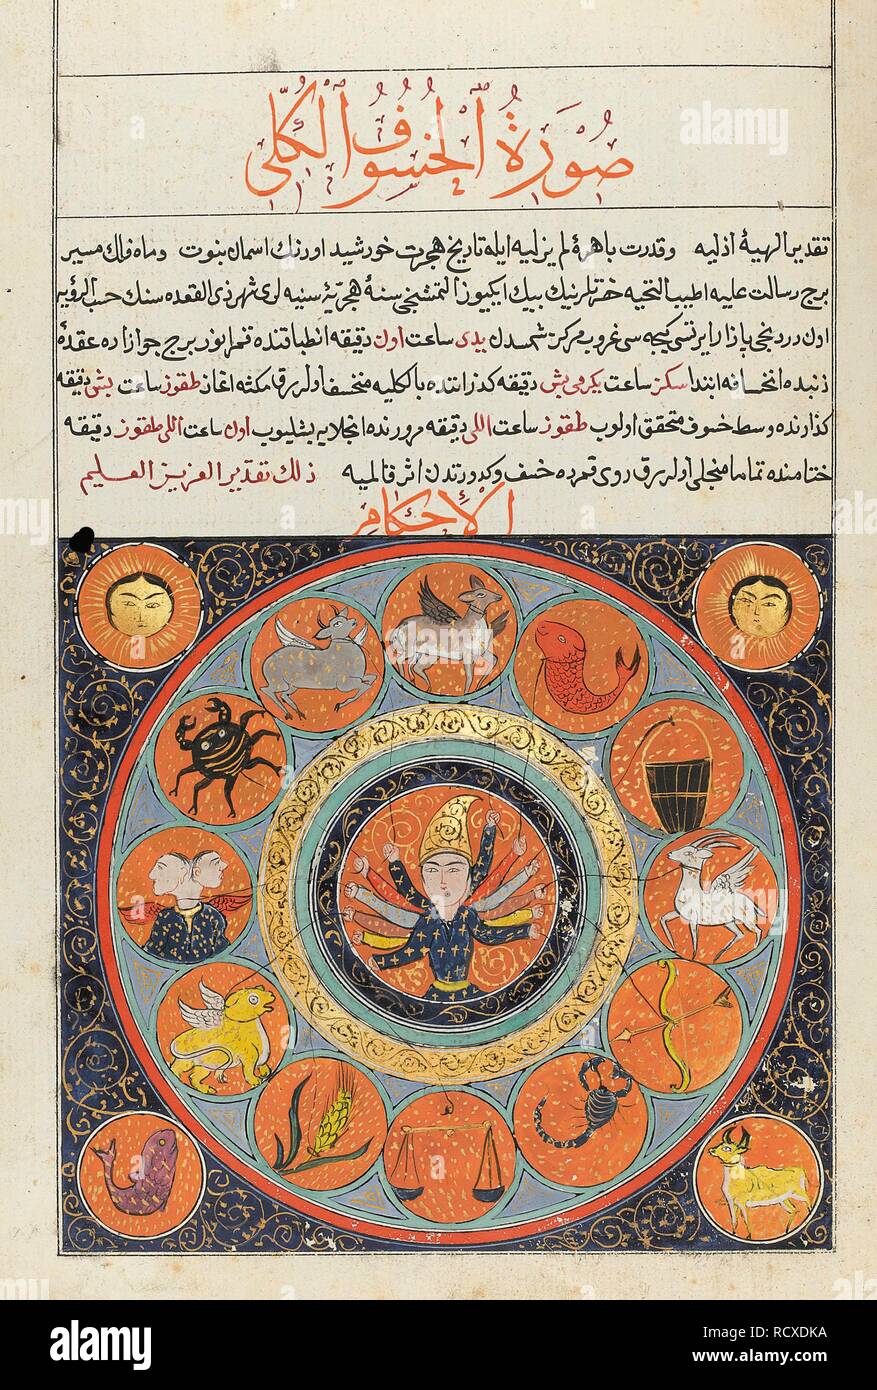 صُورَةُ الْخُسُوفُ الْكُلّى
تقدير الهیهٔ اذلیه وقدرت باهرهٔ لم یزلیه ایله تاریخ هجرت خورشید اورنك اسمان بنوت وماه فلك مسیر
برج رسالت علیه اطیب التحیه سنهٔ هجریّه سنیه لرى شهر ذى القعده سنك حسب الرؤیه
اون دردنجى پازار ایرتسى كیجه سى غروب مركز شمسدن یدى ساعت اون دقیقه قمر انور برج جوزاده عقدهٔ
ذنبده ابتدا سكز ساعت یكرمى بش دقیقه كذراننده بالكلیه منخسف اوله رق مكثه اغاز طقوز ساعت بش دقیقه
كذارنده وسط خسوف متحقق اولوب طقوز ساعت اللى دقیقه مرورنده انجلایه بشلیوب اون ساعت اللى طقوز دقیقه
ختامنده تماما منجلى اوله رق روى قمرده خسف وكدورتدن اثر قالمیه ذلك تقدیر العزیز العلیم
الاحكام
alamy
alamy
Image ID: RCXDKA
www.alamy.com